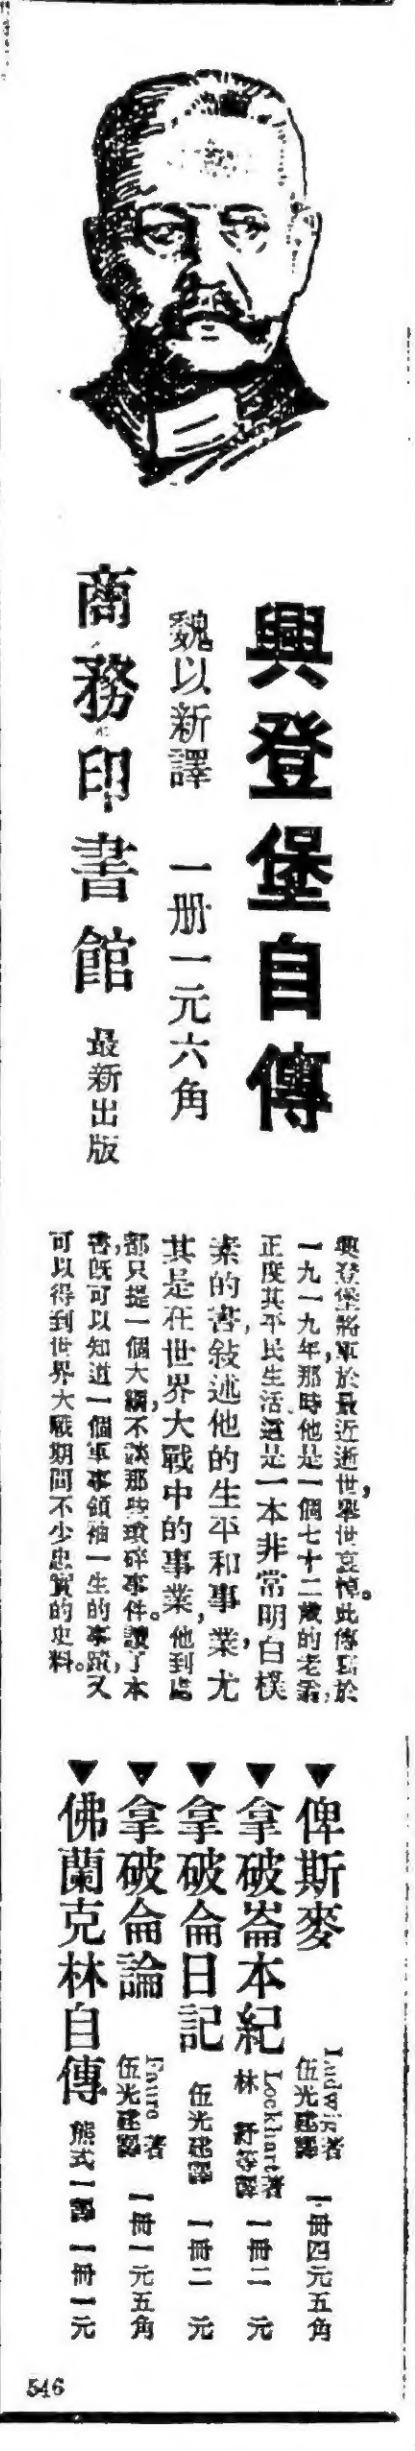 興登堡自傳
魏以新譯 一册一元六角
商務印書館 最新出版
興登堡將軍於最近逝世，舉世哀悼。此傳寫於
一九一九年，那時他是一個七十二歲的老翁，
正度其平民生活。這是一本非常明白樸
素的書，敍述他的生平和事業，尤
其是在世界大戰中的事業，他到處
都只提一個大綱，不談那些瑣碎事件。讀了本
書，既可以知道一個軍事領袖一生的事蹟，又
可以得到世界大戰期間不少忠實的史料。
▼俾斯麥 Ludwig著 伍光建譯 一冊四元五角
▼拿破崙本紀 Lockhart著 林紓等譯 一冊二元
▼拿破侖日記 伍光建譯 一冊二元
▼拿破侖論 Fauro著 伍光建譯 一冊一元五角
▼佛蘭克林自傳 熊式一譯 一冊一元
546